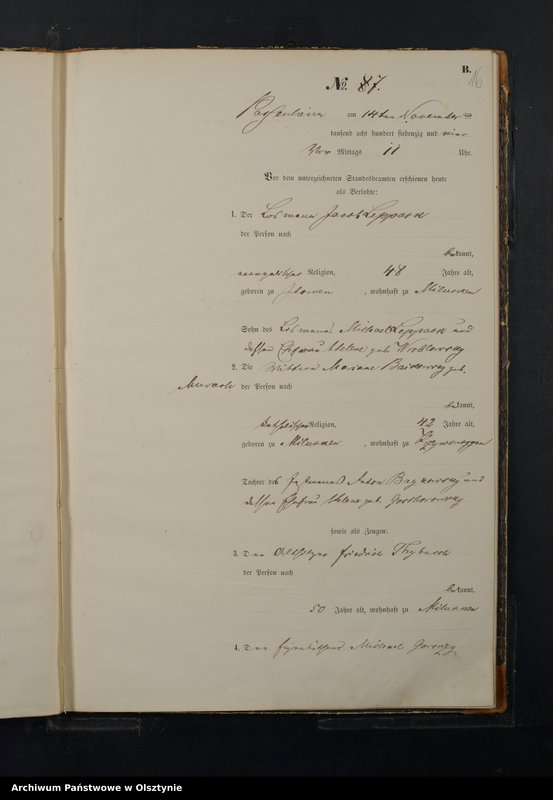 B.
116
No. 87.
Passenheim am 14ten November ein
tausend acht hundert siebenzig und vier
Vor Mittags 11 Uhr.
Vor dem unterzeichneten Standesbeamten erschienen heute
als Verlobte:
1. Der Losmann Jacob Leppack
der Person nach
bekannt,
evangelischer Religion, 48 Jahre alt,
geboren zu , wohnhaft zu Milucken
Sohn des Losmanns Michael Leppack und
dessen Ehefrau Helene geb. Wroblewsky
2. Die Wittwe Mariane geb.
der Person nach
bekannt,
katholischer Religion, 42 Jahre alt,
geboren zu , wohnhaft zu
Tochter des Anton und
dessen Ehefrau Helene geb.
sowie als Zeugen:
3. Der Altsitzer Friedrich
der Person nach
bekannt,
50 Jahre alt, wohnhaft zu Milucken
4. Der Eigenkäthner Michael
Archiwum Państwowe w Olsztynie